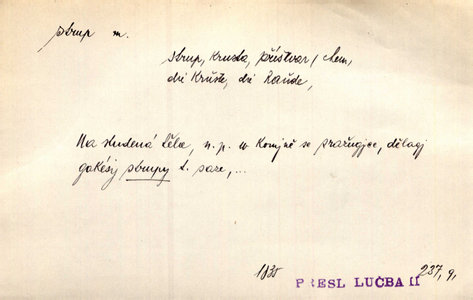 sbrup m.
sbrup, krusta, příškvar / Nem.
die Kruste, die Raude,
Na studená těla, n. p. w komjně se zražugjce, dělagj
gakésy sbrupy t. saze, ...
1835 PRESL LUČBA II 237, 9,